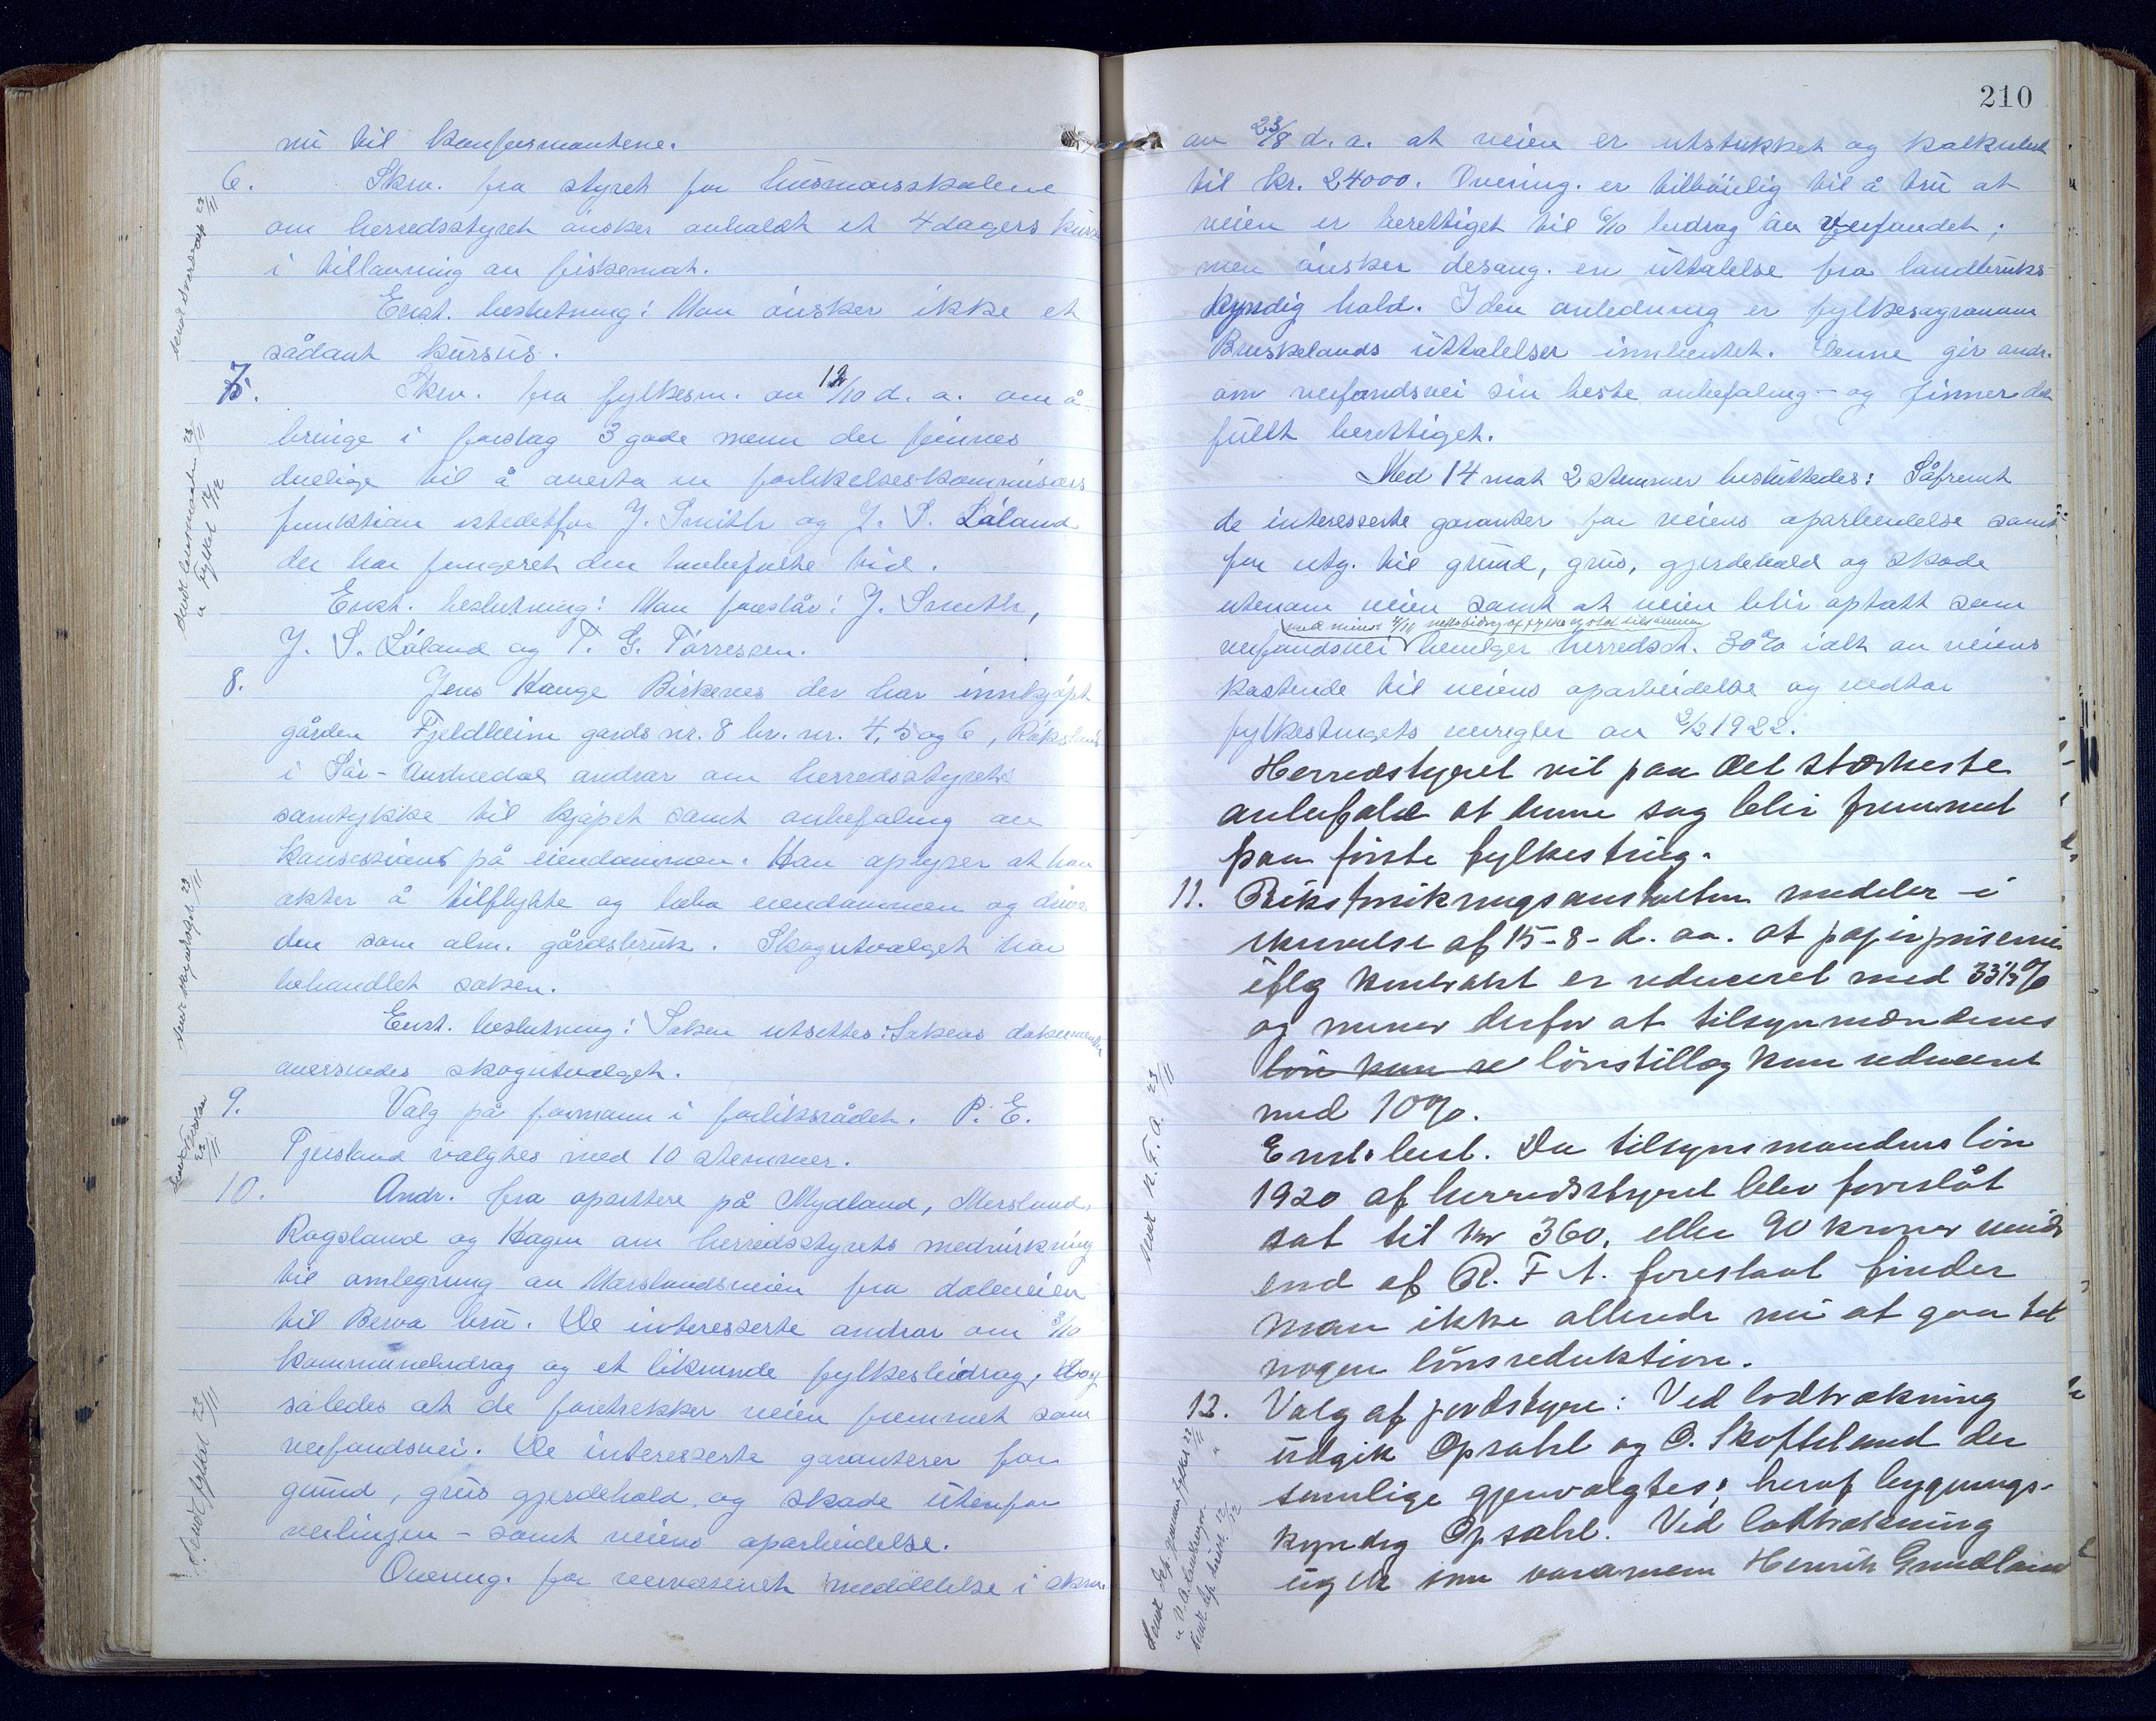 nu til konfirmantene.
6. Skriv. fra styret for husmorsskolene
om herredsstyret ønsker avholdt et 4 dagers kursus
i tillavning av fiskemat.
Enst. beslutning: Man ønsker ikke et
sådant kursus.
7. Skriv. fra fylkesm. av 12/10 d. a. om å
bringe i forslag 3 gode menn der finnes
duelige til å overta en forlikelseskommisærs
funktion istedetfor J. Smith og J. S. Låland
der har fungeret den lovbefalte tid.
Enst. beslutning: Man foreslår: J. Smith,
J. S. Låland og T. G. Tørressen.
8. Jens Hauge Birkenes der har innkjøpt
gården Fjeldheim gards nr. 8 br. nr. 4, 5 og 6,
i Sør-Audnedal andror om herredsstyrets
samtykke til kjøpet samt anbefaling av
konsesjon på eiendommen. Han oplyser at han
akter å tilflytte og bebo eiendommen og drive
den som alm. gårdsbruk. Skogutvalget har
behandlet saken.
Enst. beslutning: Saken utsettes. Sakens dokumenter
oversendes skogutvalget.
9. Valg på formann i forliksrådet. P. E.
Tjersland valgtes med 10 stemmer.
10. Andr. fra opsittere på Mydland, Mersland,
Rogsland og Hagen om herredsstyrets medvirkning
til omlegning av Merslandsveien fra daleveien
til Berva bru. De interesserte andror om 3/10
kommunebidrag og et liknende fylkesbidrag, dog
således at de foretrekker veien fremmet som
veifondsvei. De interesserte garanterer for
grund, grus gjerdehold og skade utenfor
veilinjen - samt veiens oparbeidelse.
Overing. for veivesenet meddelelse i skriv.
210
av 23/8 d. a. at veien er utstukket og kalkulert
til kr. 24000. Overing. er tilbøielig til å tru at
veien er berettiget til 6/10 bidrag av veifondet,
men ønsker desang. en uttalelse fra landbruks-
kyndig hold. I den anledning er fylkesagronom
Bruskelands uttalelser innhentet. Denne gir andr.
om veifondsvei sin beste anbefaling - og finner det
fullt berettiget.
Med 14 mot 2 stemmer besluttedes: Såfremt
de interesserte garanter for veiens oparbeidelse samt
for utg. til grund, grus, gjerdehold og skade
utenom veien samt at veien blir optatt som
med minst 7/10 veibidrag af fylke og stat tilsammen
veifondsvei bevilger herredsst. 30% ialt av veiens
kostende til veiens oparbeidelse og vedtar
fylkestingets veiregler av 2/2 1922.
Herredstyret vil paa det stærkeste
anbefale at denne sag blir fremmet
paa første fylkesting.
11. Riksforsikringsanstalten meddeler i
skrivelse af 15-8-d. aa. at papirpriserne
iflg kontrakt er reduceret med 33 1/3 %
og mener derfor at tilsynmændenes
løn kan re lønstillæg kan reduceret
med 10%.
Enst. besl. Da tilsynsmandens løn
1920 af herredsstyret blev foreslåt
sat til kr 360, eller 90 kroner mindre
end af R. F. A. foreslaat finder
man ikke allerede nu at gaa til
nogen lønsreduktion.
12. Valg af jordstyre: Ved lodtrækning
udgik Opsahl og O. Skofteland der
samtlige gjenvalgtes, heraf bygnings-
kyndig Opsahl. Ved lodtrækning
ugik som varamenn Henrik Grundland
Sendt lensmannen 23/11
" fylket 12/12
Sendt skogutvalget 23/11
Sendt fylket 23/11
Sendt R. F. A. 23/11